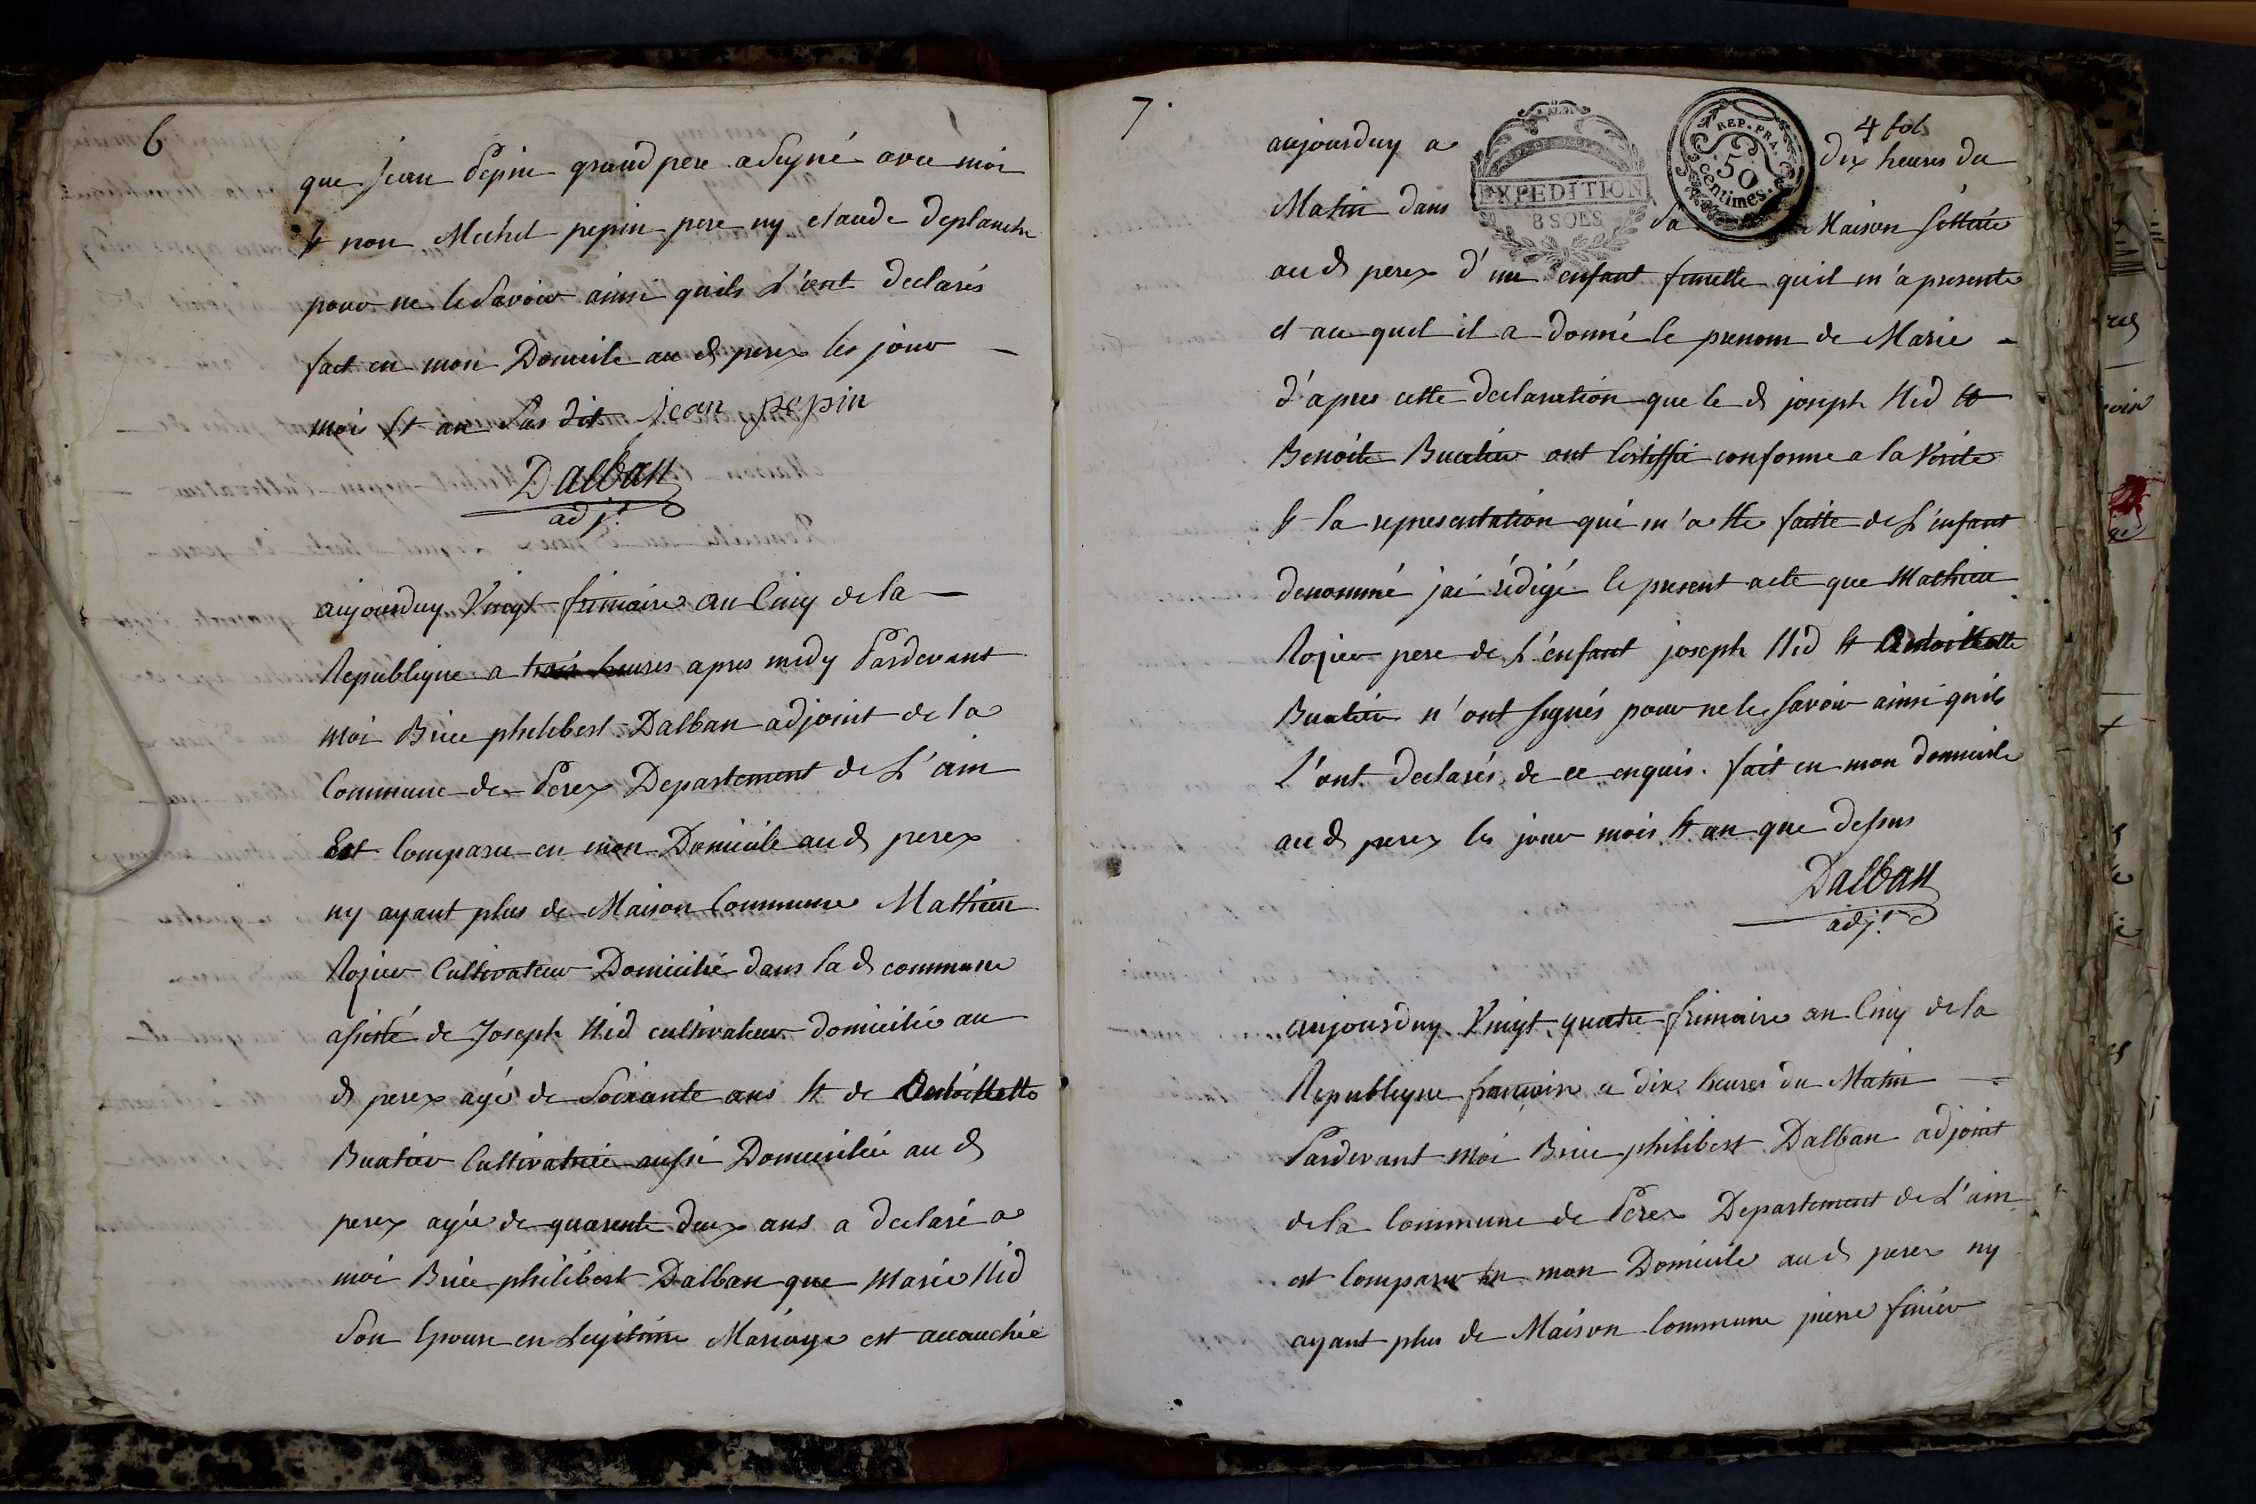 6
que jean Pepin grand pere a signé avec moi
& non Michel pepin pere ny claude deplanche
pour ne le savoir ainsi quils l'ont declarés
fait en mon Domicile au d perex les jour
moi & an sus dit jean pepin
Dalban
adj.t
aujourduy Vingt frimaire an Cinq de la
Republique a trois heures apres midy Pardevant
moi Brice philibert Dalban adjoint de la
Commune de Perex Departement de L'ain
Est Comparu en mon Domicile au d perex
ny ayant plus de Maison Commune Mathieu
Rozier Cultivateur Domicilié dans la d commune
assisté de Joseph Nid cultivateur domicilié au
d perex agé de Soixante ans & de
Buatier Cultivatrice aussi Domiciliée au d
perex agée de quarente deux ans a declaré a
moi Brice philibert Dalban que Marie Nid
Son Epouse en Legitime Mariage est accouchée
7.
4 fol
aujourduy a dix heures du
REP. FRA.
50
centimes.
EXPEDITION
8 SOLS
Matin dans sa Maison scittuée
au d perex d'un enfant femelle quil m'a presenté
et au quel il a donné le prenom de Marie
d'apres cette declaration que le d joseph Nid &
Benoite Buatier ont Certiffié conforme a la Verité
& la representation qui m'a été faitte de L'enfant
denommé jai rédigé le present acte que Mathieu
Rozier pere de L'enfant joseph Nid &
Buatier n'ont signés pour ne le savoir ainsi quils
L'ont declarés de ce enquis. fait en mon domicile
au d perex les jour mois & an que dessus
Dalban
adj.t
aujourduy Vingt quatre frimaire an Cinq de la
Republique francoise a dix heures du Matin
Pardevant moi Brice philibert Dalban adjoint
de la Commune de Perex Departement de L'ain
est Comparu en mon Domicile au d perex ny
ayant plus de Maison Commune pierre